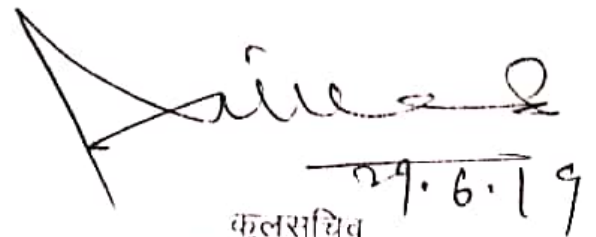 29.6.19
कुलसचिव